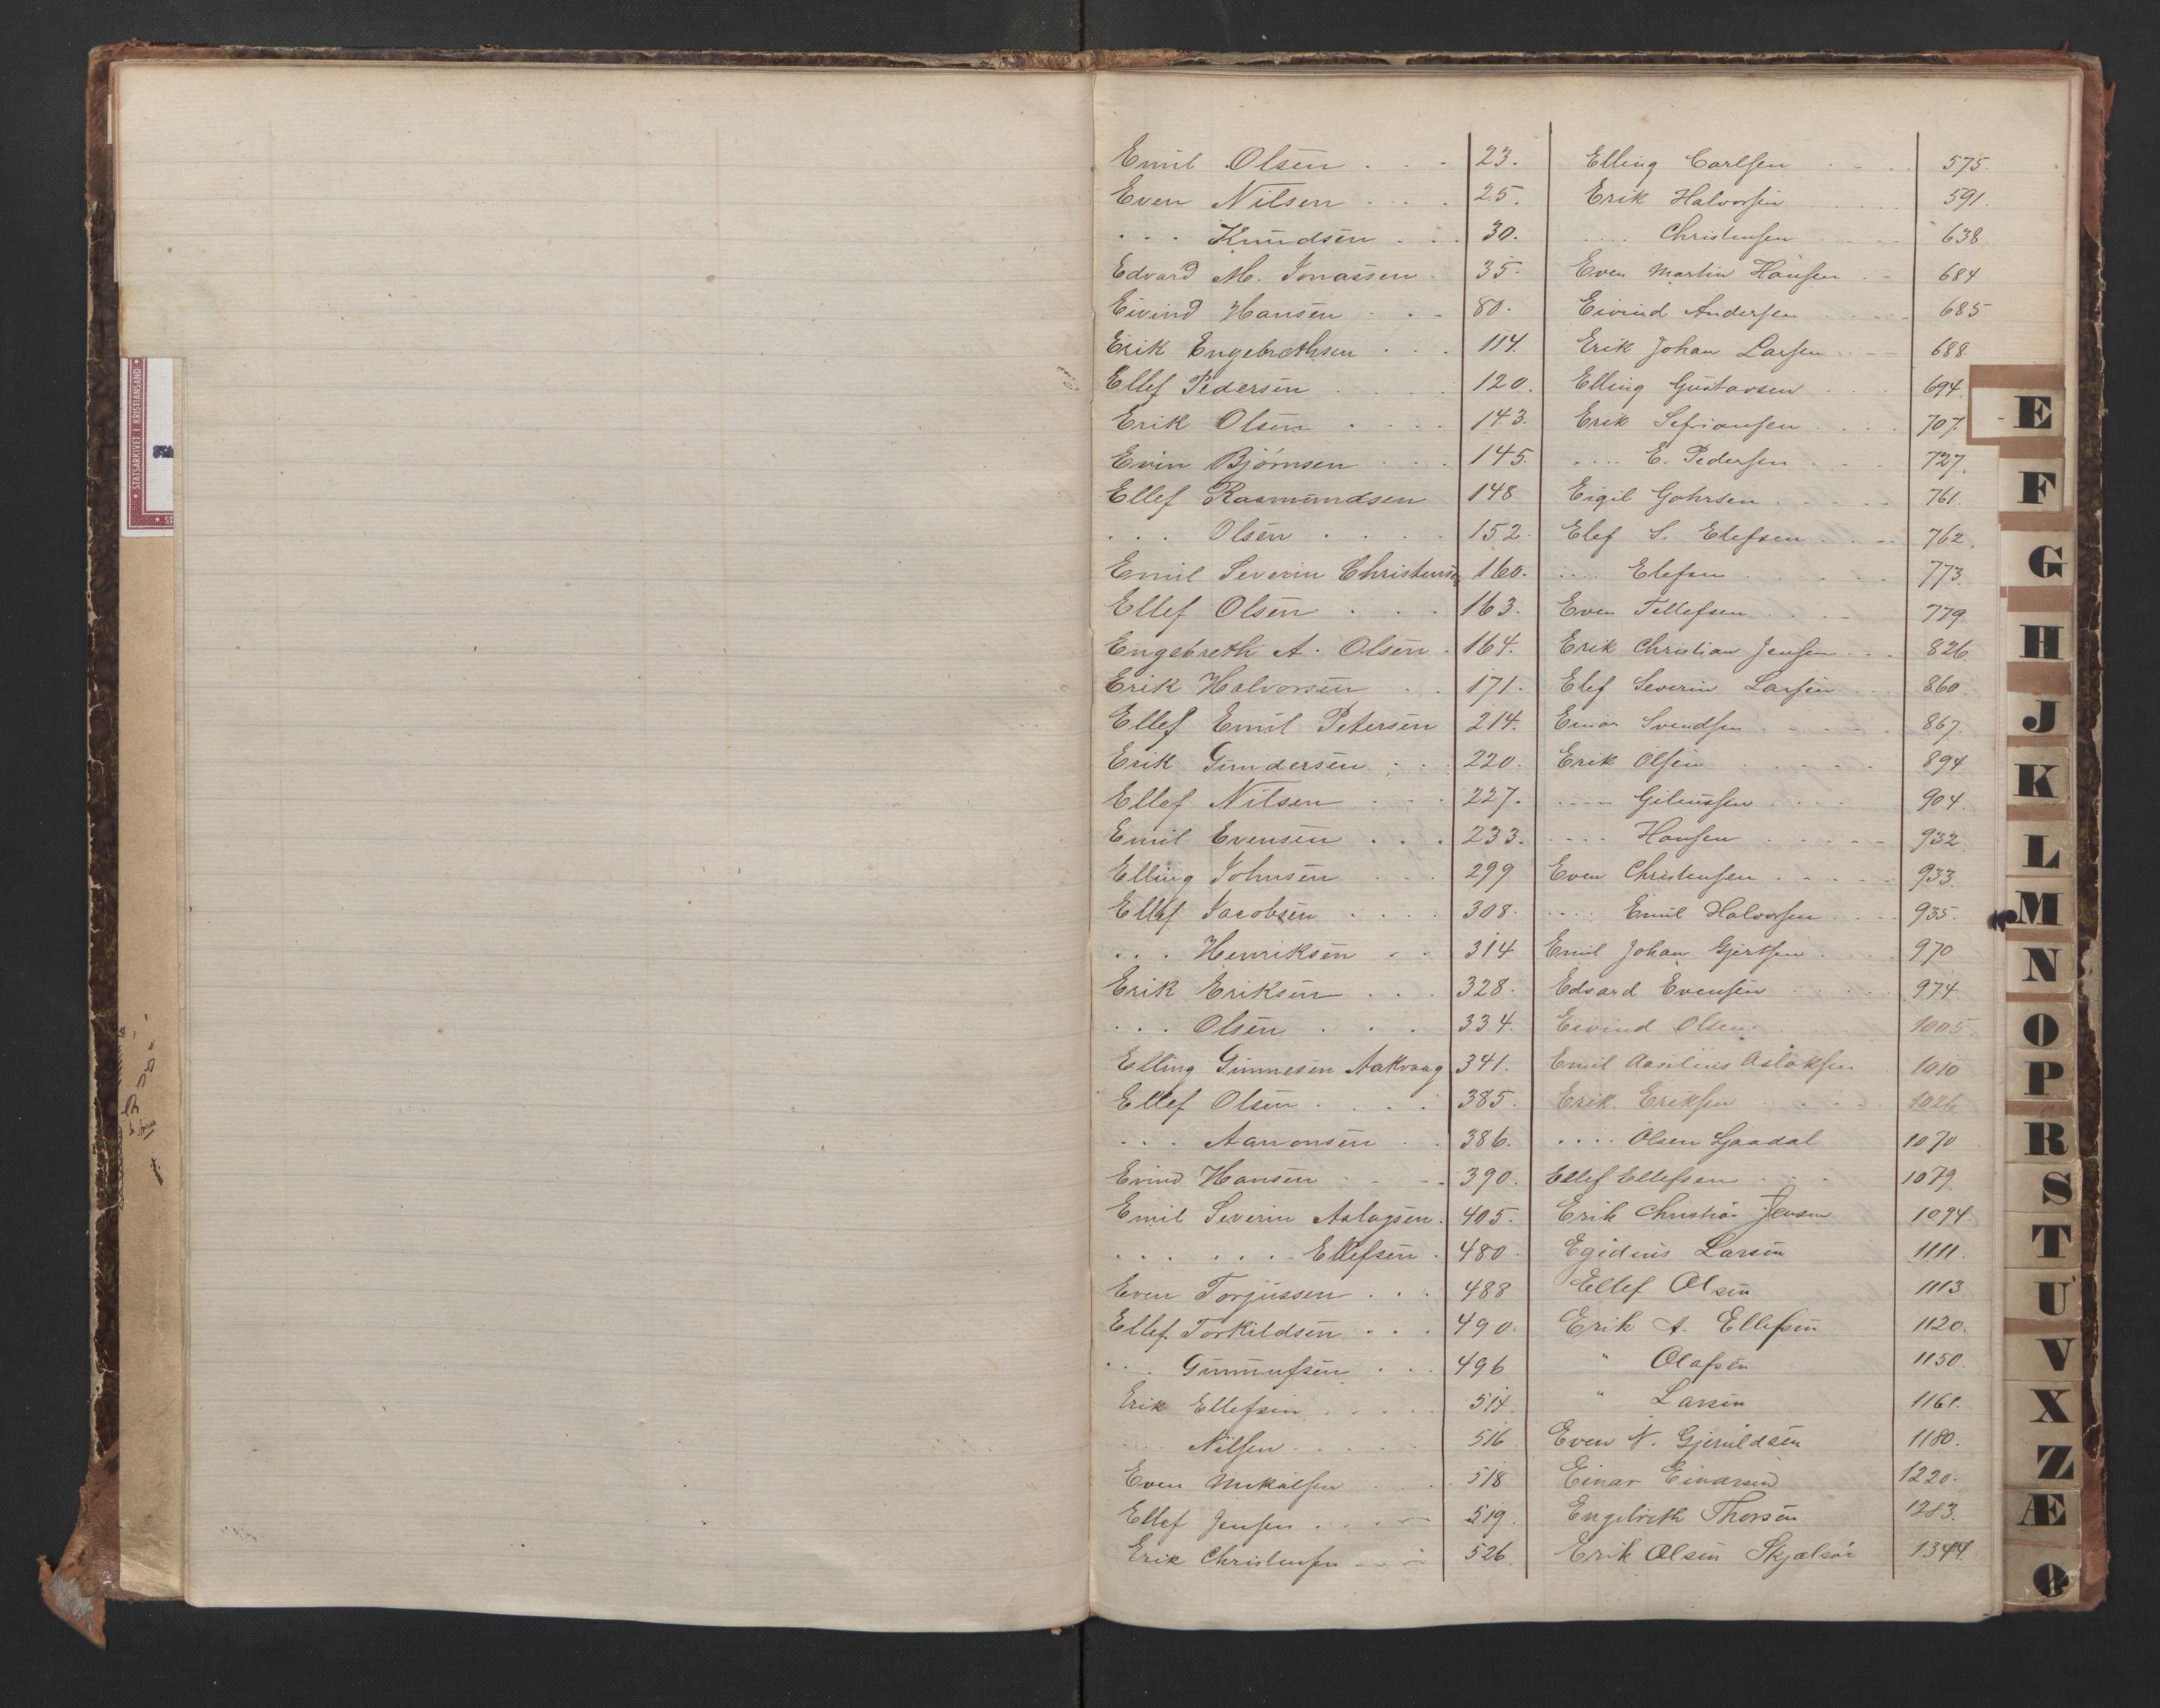 Emil Olsen . . . 23.
Even Nilsen . . . 25.
. . . Knudsen . . . 30.
Edvard M. Jonassen . 35.
Eivind Hansen . . . 80.
Erik Engebrethsen . . . 114.
Ellef Pedersen . . . . 120.
Erik Olsen . . . . 143.
Evin Bjørnsen . . . 145.
Ellef Rasmundsen 148
. . . Olsen . . . . 152.
Emil Severin Christensen 160.
Ellef Olsen . . . 163.
Engebreth A. Olsen . 164.
Erik Halvorsen . . 171.
Ellef Emil Petersen 214.
Erik Gundersen . . . 220.
Ellef Nilsen . . . 227.
Emil Evensen . . . 233.
Elling Johnsen . . . 299
Ellef Jacobsen . . . . 308.
. . . Henriksen . . 314
Erik Eriksen . . . 328.
. . . Olsen . . . 334.
Elling Gunnesen Aakvaag 341.
Ellef Olsen . . . . 385.
. . . Aanonsen . . 386.
Evind Hansen . . . 390.
Emil Severin Aslagsen . 405.
. . . . . . Ellefsen . 480
Even Torjussen . . . 488
Ellef Torkildsen . . . 490.
. . . Gunnufsen . . . 496
Erik Ellefsen . . . . 514
. . . . Nilsen . . . . . 516
Even Mikalsen . . . 518
Ellef Jensen . . . . 519.
Erik Christensen . . . 526.
Elling Carlsen . . . 575.
Erik Halvorsen . . . . . 591.
. . . . Christensen . . . . 638
Even Martin Hansen . . 684
Eivind Andersen . . . . 685
Erik Johan Larsen . . . 688.
Elling Gustavsen . . . 694.
Erik Sefriansen . . . . 707.
. . . . E. Pedersen . . . 727.
Eigil Gohrsen . . . . . 761.
Elef S. Elefsen . . . . 762.
. . . . Elefsen . . . . . 773.
Even Tellefsen . . . . 779.
Erik Christian Jensen . . . 826.
Elef Severin Larsen . . . 860.
Einar Svendsen . . . . . 867.
Erik Olsen . . . . . 894
. . . . Giliussen . . . . 904.
. . . . Hansen . . . . . 932.
Even Christensen . . . . . 933.
. . . . Emil Halvorsen . . . . 935.
Emil Johan Gjertsen . . . . 970
Edvard Evensen . . . . . 974
Eivind Olsen . . . . 1005.
Emil Aasilius Aslaksen 1010
Erik Eriksen . . . . . 1026
. . . . Olsen Ljaadal 1070
Ellef Ellefsen . . . . 1079
Erik Christian Jensen 1094.
Egidius Larsen 1111.
Ellef Olsen 1113.
Erik A. Ellefsen 1120.
" Olafsen 1150.
" Larsen 1161.
Even N. Gjeruldsen 1180.
Einar Einarsen 1220.
Engebreth Thorsen 1283.
Erik Olsen Skjælsøe 1344
E
F
G
H
J
K
L
M
N
O
P
R
S
T
U
V
X
Z
Æ
Ø
STATSARKIVET I KRISTIANSAND